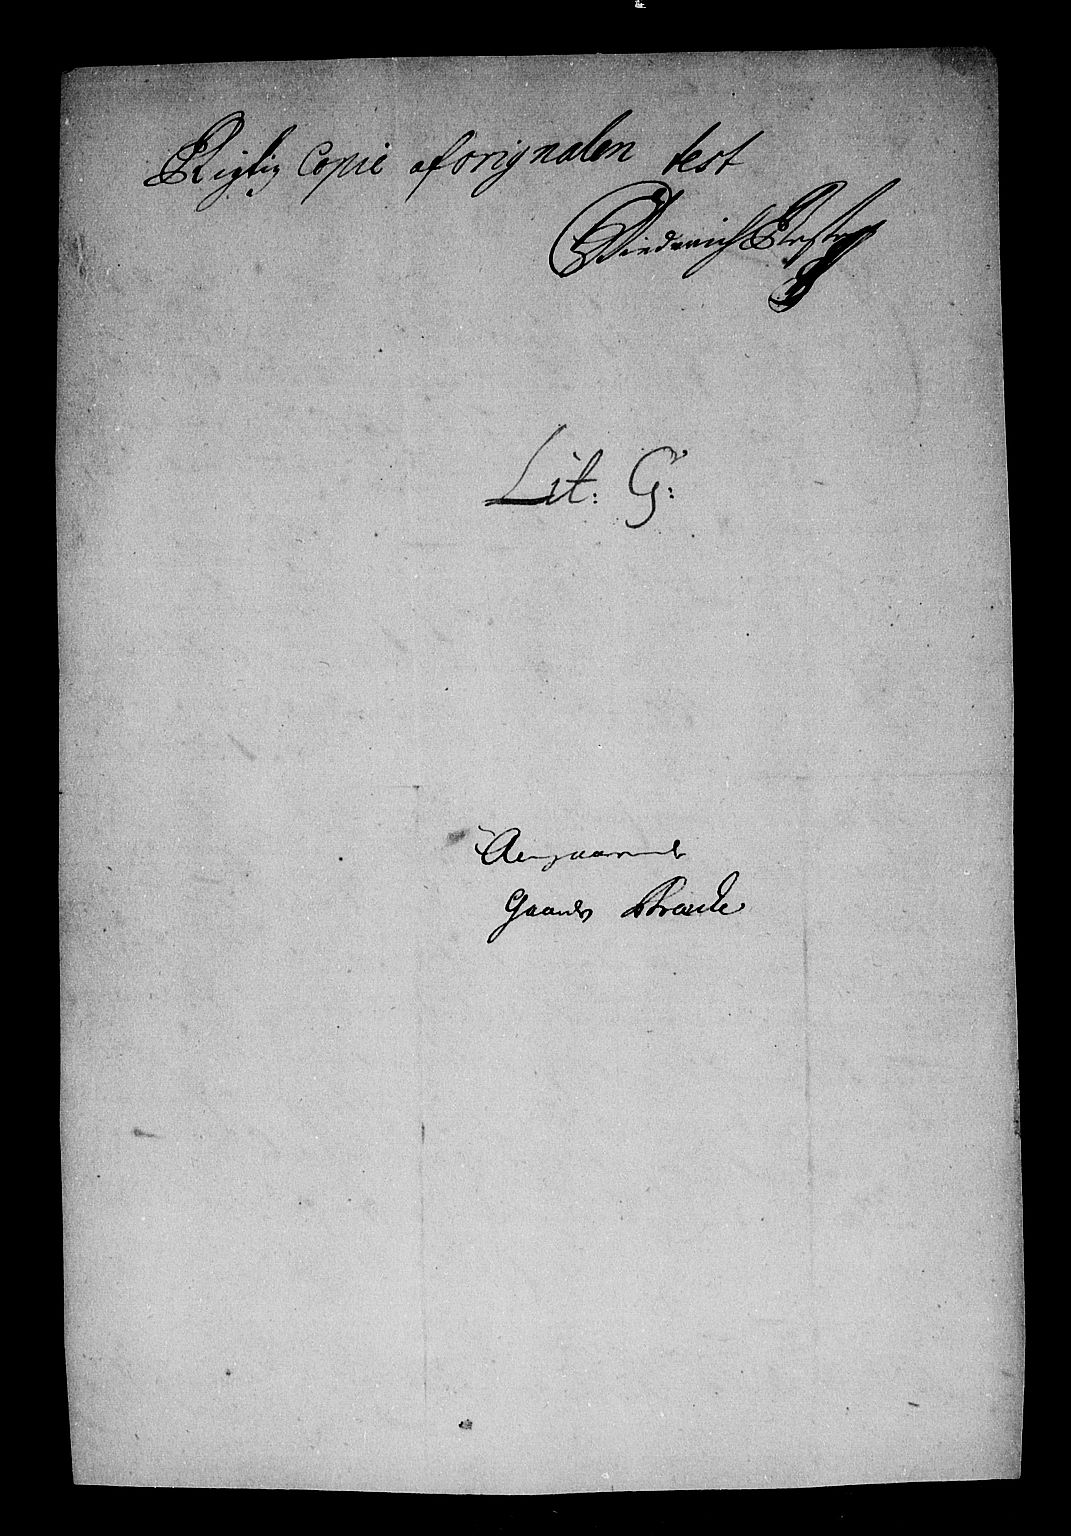 Rigtig Copie af orignalen test
Diederich
Lit: G:
Angaaende
Gaards Brande